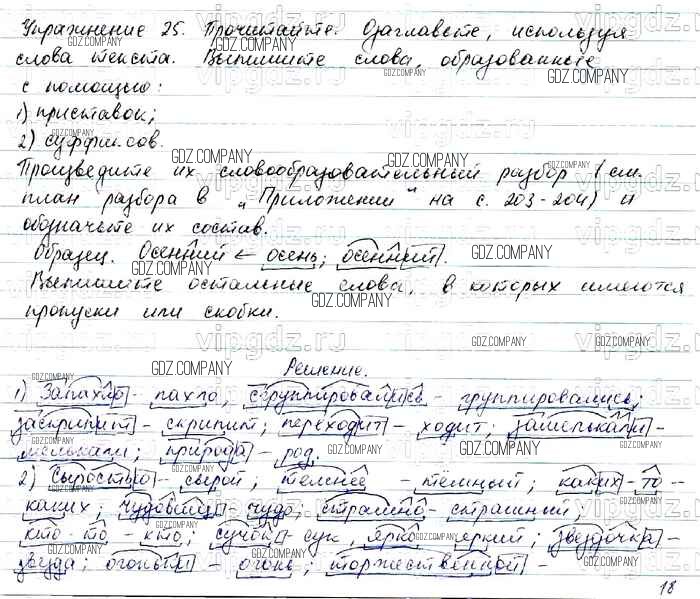 Упражнение 25. Прочитайте. Озаглавьте, используя
слова текста. Выпишите слова, образованные
с помощью:
1) приставок;
2) суффиксов.
Произведите их словообразовательный разбор (см.
план разбора в „Приложении" на с. 203-204) и
обозначьте их состав.
Образец. Осенний ← осень; осенний.
Выпишите остальные слова, в которых имеются
пропуски или скобки.
Решение.
1) Запахло - пахло, сгруппировались - группировались;
заскрипит - скрипит; переходит - ходит; замелькали -
мелькали; природа - род.
2) Сыростью - сырой; темнее - тёмный; каких-то -
каких; чудовища - чудо; страшно - страшный;
кто-то - кто; сучок - сук, ярко - яркий; звездочка -
звезда; огоньки - огонь; торжественной -
18
GDZ.COMPANY
vipgdz.ru